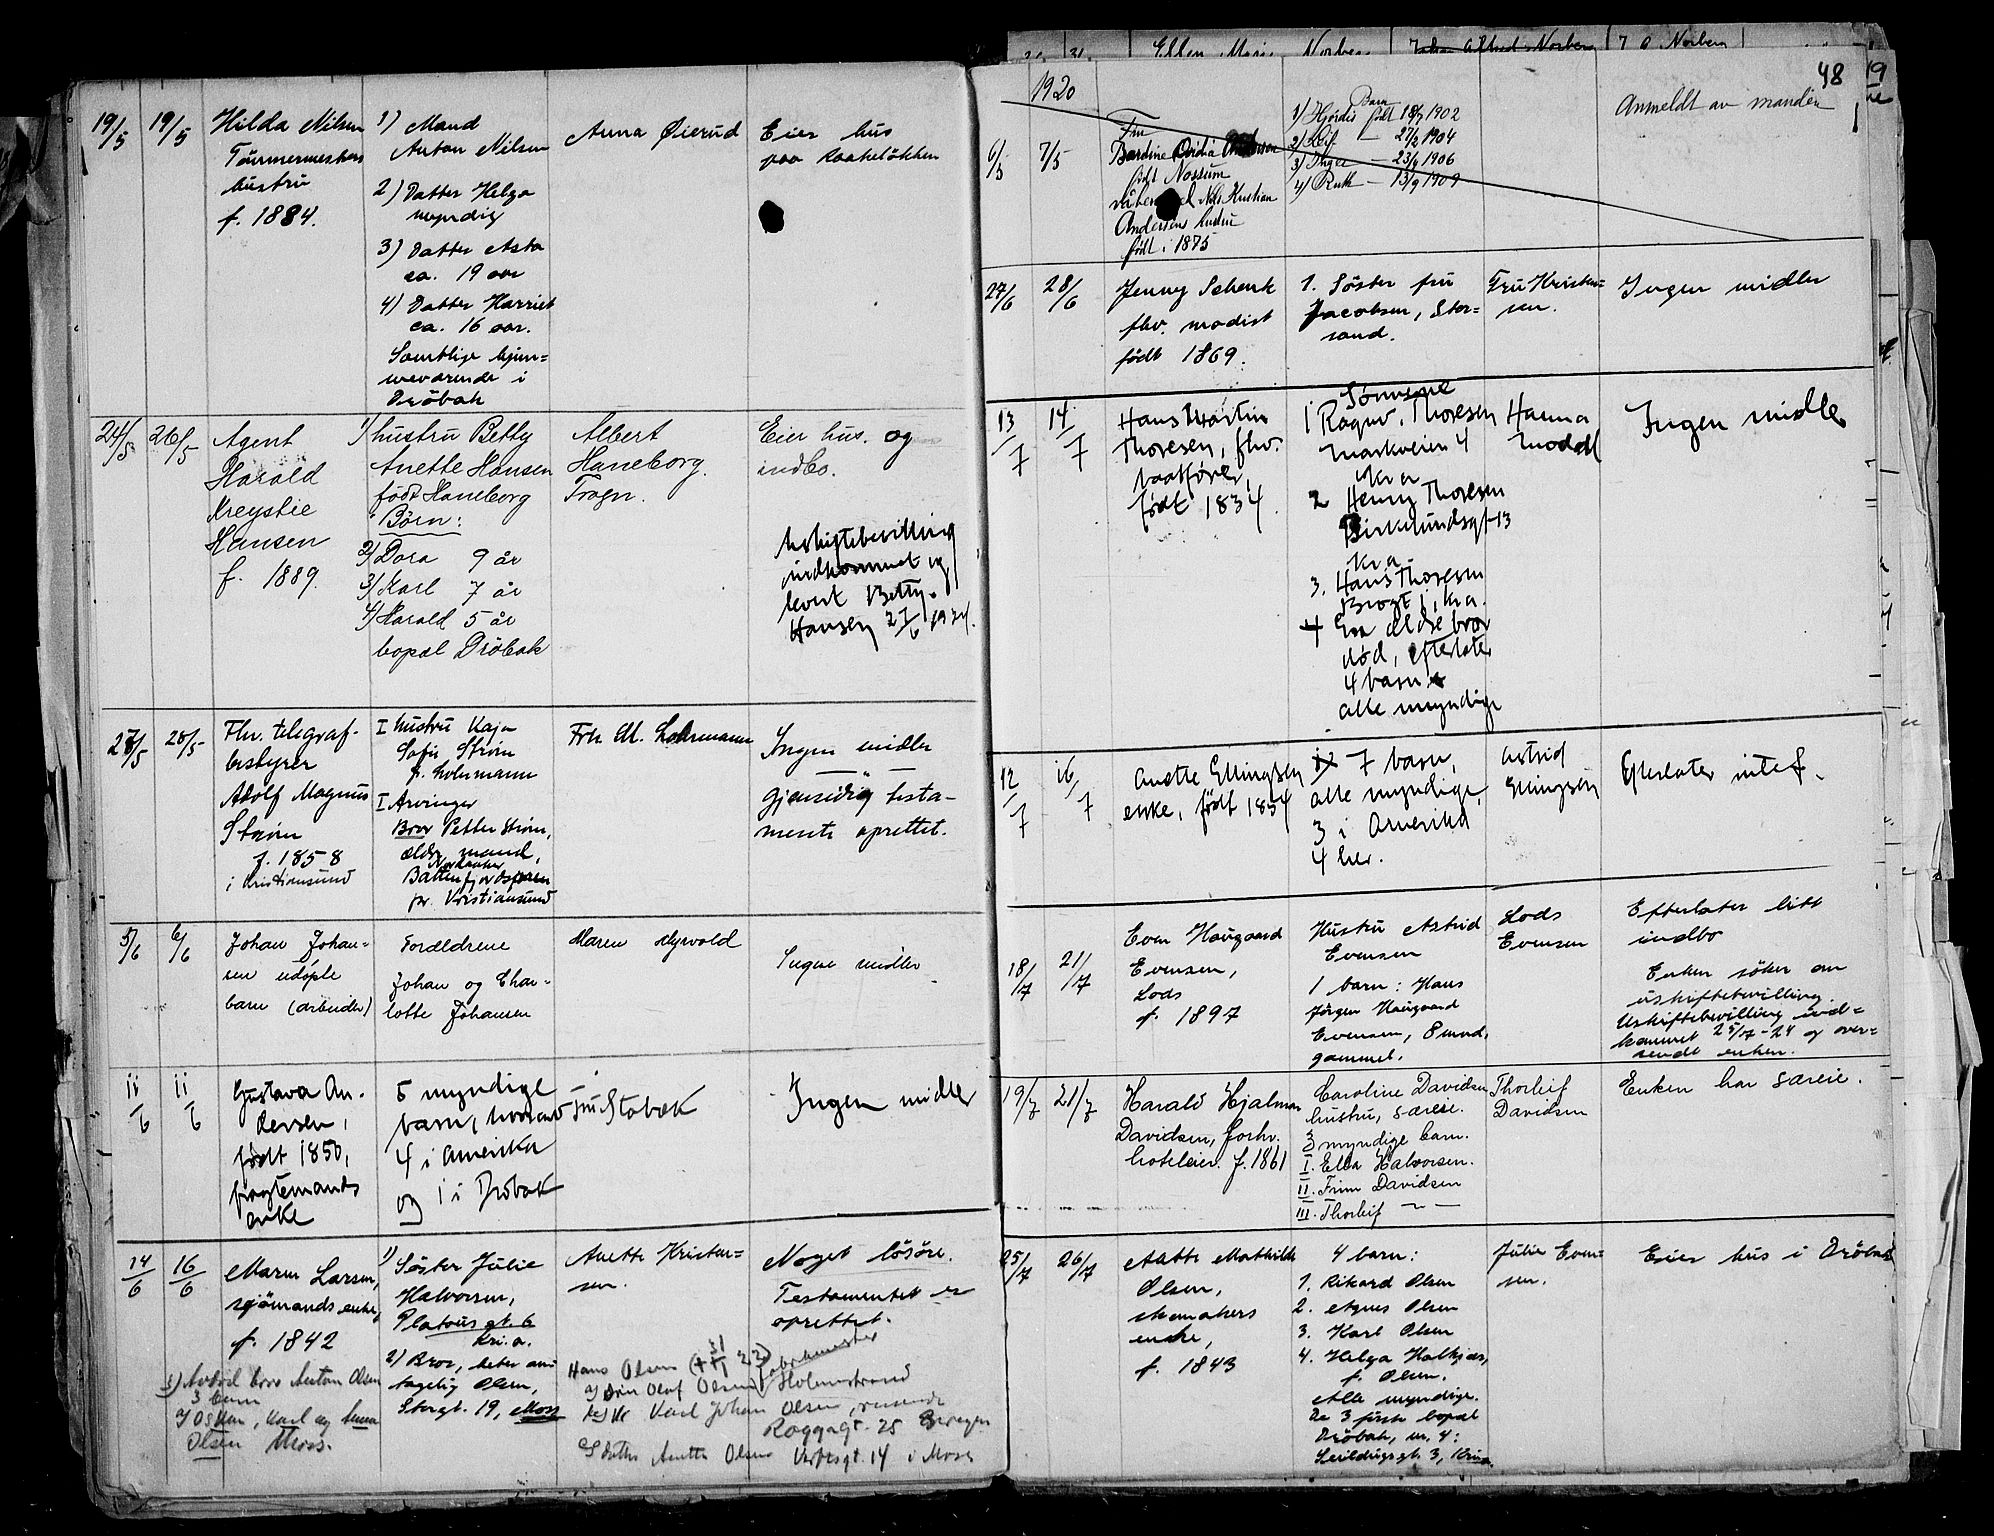 19/5
19/5
Hilda Nilsen
Tömmermesters
hustru
f. 1884.
1) Mand
Anton Nilsen
2) Datter Helga
myndig
3) Datter Asta
ca. 19 aar
4) Datter Harriet
ca. 16 aar.
Samtlige hjem=
meværende i
Dröbak
Anna Øierud
Eier hus
paa
24/5
26/5
Agent
Harald
Kreystie
Hansen
f. 1889.
1) hustru Betty
Anette Hansen
født Haneborg
Børn:
2) Dora 9 år
3) Karl 7 år
4) Harald 5 år
bopæl Dröbak
Albert
Haneborg.
Frogn.
Eier hus. og
indbo.
Uskiftebevilling
indkommet og
levert Betty
Hansen 27/6 1924.
27/5
28/5
Fhv. telegraf-
bestyrer
Adolf Magnus
Strøm
f. 1858
i Kristiansund
I hustru Kaja
Sofie Strøm
f. Lohrmann
I Arvinger
Bror Petter Strøm,
ældre mand,
Battenfjordsøren
pr. Kristiansund
Frk M. Lohrmann
Ingen midler
Gjensidig testa-
mente oprettet.
5/6
6/6
Johan Johan=
sen udöpte
barn (arbeider)
Forældrene
Johan og Char=
lotte Johansen
Maren Myrvold
Ingen midler
11/6
11/6
Gustava An-
dersen,
født 1850,
fragtemands
enke
5 myndige
barn, hvorav
4 i Amerika
og 1 i Drøbak
Fru Stabæk
Ingen midler
14/6
16/6
Maren Larsen,
sjømands enke,
f. 1842
1) Söster Julie
Halvorsen,
Platousgt. 6
Kr.a.
2) Bror, heter an=
tagelig Olsen,
Storgt. 19, Moss
Anette Kristen=
sen.
Noget lösöre.
Testamentet er
oprettet.
Anton Olsen
3 barn
Karl og Anna
Olsen Moss.
Hans Olsen
Olaf Olsen Holmestrand
Karl Johan Olsen,
25 Bergen
Anette Olsen 14 i Moss
48
1920
6/5
7/5
Fru
Bardine Andersen
født Nossum
Nils Kristian
Andersens hustru
født i 1875
Barn
1) Hjördis født 1902
2) Leif — 27/2 1904
3) Inger — 23/4 1906
4) Ruth — 13/9 1909
Anmeldt av manden
27/6
28/6
Jenny Schenk
fhv. modist
født 1869.
1. Söster fru
Jacobsen, Stor=
sand.
Fru Kristen=
sen.
Ingen midler
13/7
14/7
Hans Martin
Thoresen, fhv.
baatfører,
født 1834.
Sønnerne
1 Ragnv. Thoresen
Markveien 4
Kra
2 Henry Thoresen
Birkelundsgt 13
Kra
3. Hans Thoresen
Krogt 1, Kra.
4 En ældre bror
død, efterlater
4 barn
alle myndige
Hanna
Ingen midler
12/7
16/7
Anette Ellingsen
enke, født 1854
7 barn,
alle myndige,
3 i Amerika
4 her.
Astrid
Ellingsen
Efterlater intet.
18/7
21/7
Even Haugaard
Evensen,
Lods
f. 1897
Hustru Astrid
Evensen
1 barn: Hans
Jörgen Haugaard
Evensen, 8 mnd.
gammel.
Lods
Evensen
Efterlater litt
indbo
Enken söker om
uskiftebevilling.
Uskiftebevilling ind=
kommet 25/7-24 og over=
sendt enken.
19/7
21/7
Harald Hjalmar
Davidsen, forhv.
hoteleier. f. 1861
Caroline Davidsen
hustru, særeie.
3 myndige barn.
I. Ella Halvorsen.
II. Finn Davidsen
III. Thorleif — —
Thorleif
Davidsen
Enken har særeie.
25/7
26/7
Anette Mathilde
Olsen,
skomakers
enke,
f. 1843
4 barn:
1. Rikard Olsen
2. Agnes Olsen
3. Karl Olsen
4. Helga
f. Olsen.
Alle myndige.
De 3 første bopæl
Dröbak, nr. 4:
Seilduksgt. 3, Kr.a.
Julie Even=
sen.
Eier hus i Dröbak